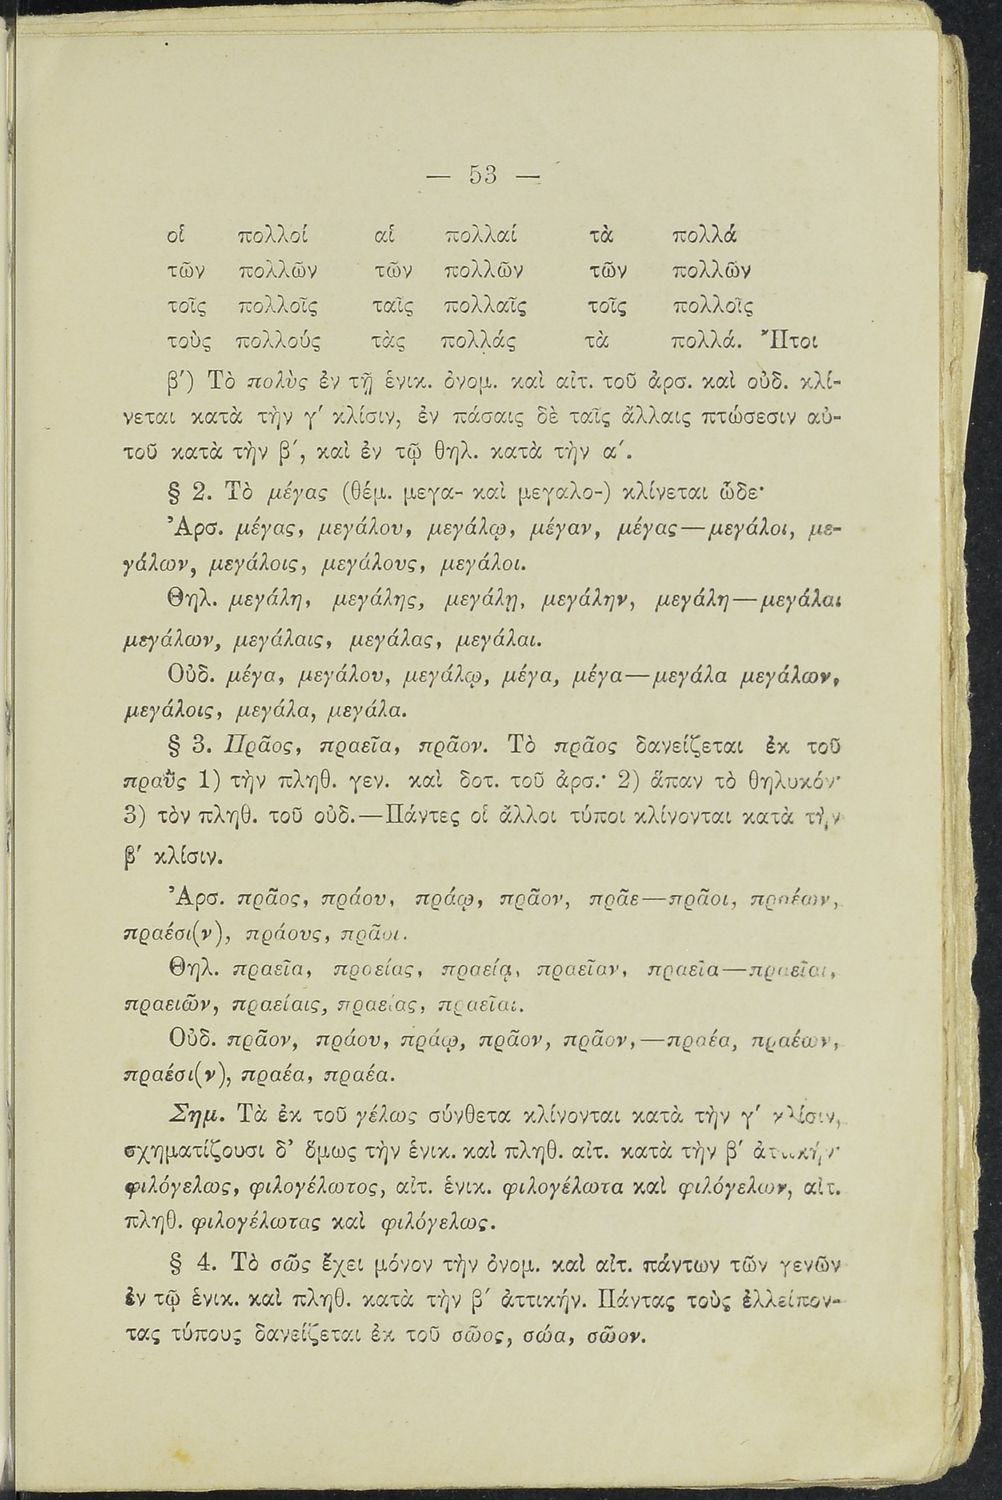 — 53 —
οἱ πολλοί αἱ πολλαί τὰ πολλά
τῶν πολλῶν τῶν πολλῶν τῶν πολλῶν
τοῖς πολλοῖς ταῖς πολλαῖς τοῖς πολλοῖς
τοὺς πολλούς τὰς πολλάς τὰ πολλά. Ἤτοι
β') Τὸ πολὺς ἐν τῇ ἑνικ. ὀνομ. καὶ αἰτ. τοῦ ἀρσ. καὶ οὐδ. κλί-
νεται κατὰ τὴν γ' κλίσιν, ἐν πάσαις δὲ ταῖς ἄλλαις πτώσεσιν αὐ-
τοῦ κατὰ τὴν β', καὶ ἐν τῷ θηλ. κατὰ τὴν α'.
§ 2. Τὸ μέγας (θέμ. μεγα- καὶ μεγαλο-) κλίνεται ὧδε·
Ἀρσ. μέγας, μεγάλου, μεγάλῳ, μέγαν, μέγας—μεγάλοι, με-
γάλων, μεγάλοις, μεγάλους, μεγάλοι.
Θηλ. μεγάλη, μεγάλης, μεγάλῃ, μεγάλην, μεγάλη—μεγάλαι
μεγάλων, μεγάλαις, μεγάλας, μεγάλαι.
Οὐδ. μέγα, μεγάλου, μεγάλῳ, μέγα, μέγα—μεγάλα μεγάλων,
μεγάλοις, μεγάλα, μεγάλα.
§ 3. Πρᾶος, πραεῖα, πρᾶον. Τὸ πρᾶος δανείζεται ἐκ τοῦ
πραΰς 1) τὴν πληθ. γεν. καὶ δοτ. τοῦ ἀρσ.· 2) ἅπαν τὸ θηλυκόν·
3) τὸν πληθ. τοῦ οὐδ.—Πάντες οἱ ἄλλοι τύποι κλίνονται κατὰ τὴν
β' κλίσιν.
Ἀρσ. πρᾶος, πράου, πράῳ, πρᾶον, πρᾶε—πρᾶοι, πραέων,
πραέσι(ν), πράους, πρᾶοι.
Θηλ. πραεῖα, πραείας, πραείᾳ, πραεῖαν, πραεῖα—πραεῖαι,
πραειῶν, πραείαις, πραείας, πραεῖαι.
Οὐδ. πρᾶον, πράου, πράῳ, πρᾶον, πρᾶον,—πραέα, πραέων,
πραέσι(ν), πραέα, πραέα.
Σημ. Τὰ ἐκ τοῦ γέλως σύνθετα κλίνονται κατὰ τὴν γ' κλίσιν,
σχηματίζουσι δ' ὅμως τὴν ἑνικ. καὶ πληθ. αἰτ. κατὰ τὴν β' ἀττικήν·
φιλόγελως, φιλογέλωτος, αἰτ. ἑνικ. φιλογέλωτα καὶ φιλόγελων, αἰτ.
πληθ. φιλογέλωτας καὶ φιλόγελως.
§ 4. Τὸ σῶς ἔχει μόνον τὴν ὀνομ. καὶ αἰτ. πάντων τῶν γενῶν
ἐν τῷ ἑνικ. καὶ πληθ. κατὰ τὴν β' ἀττικήν. Πάντας τοὺς ἐλλείπον-
τας τύπους δανείζεται ἐκ τοῦ σῶος, σώα, σῶον.